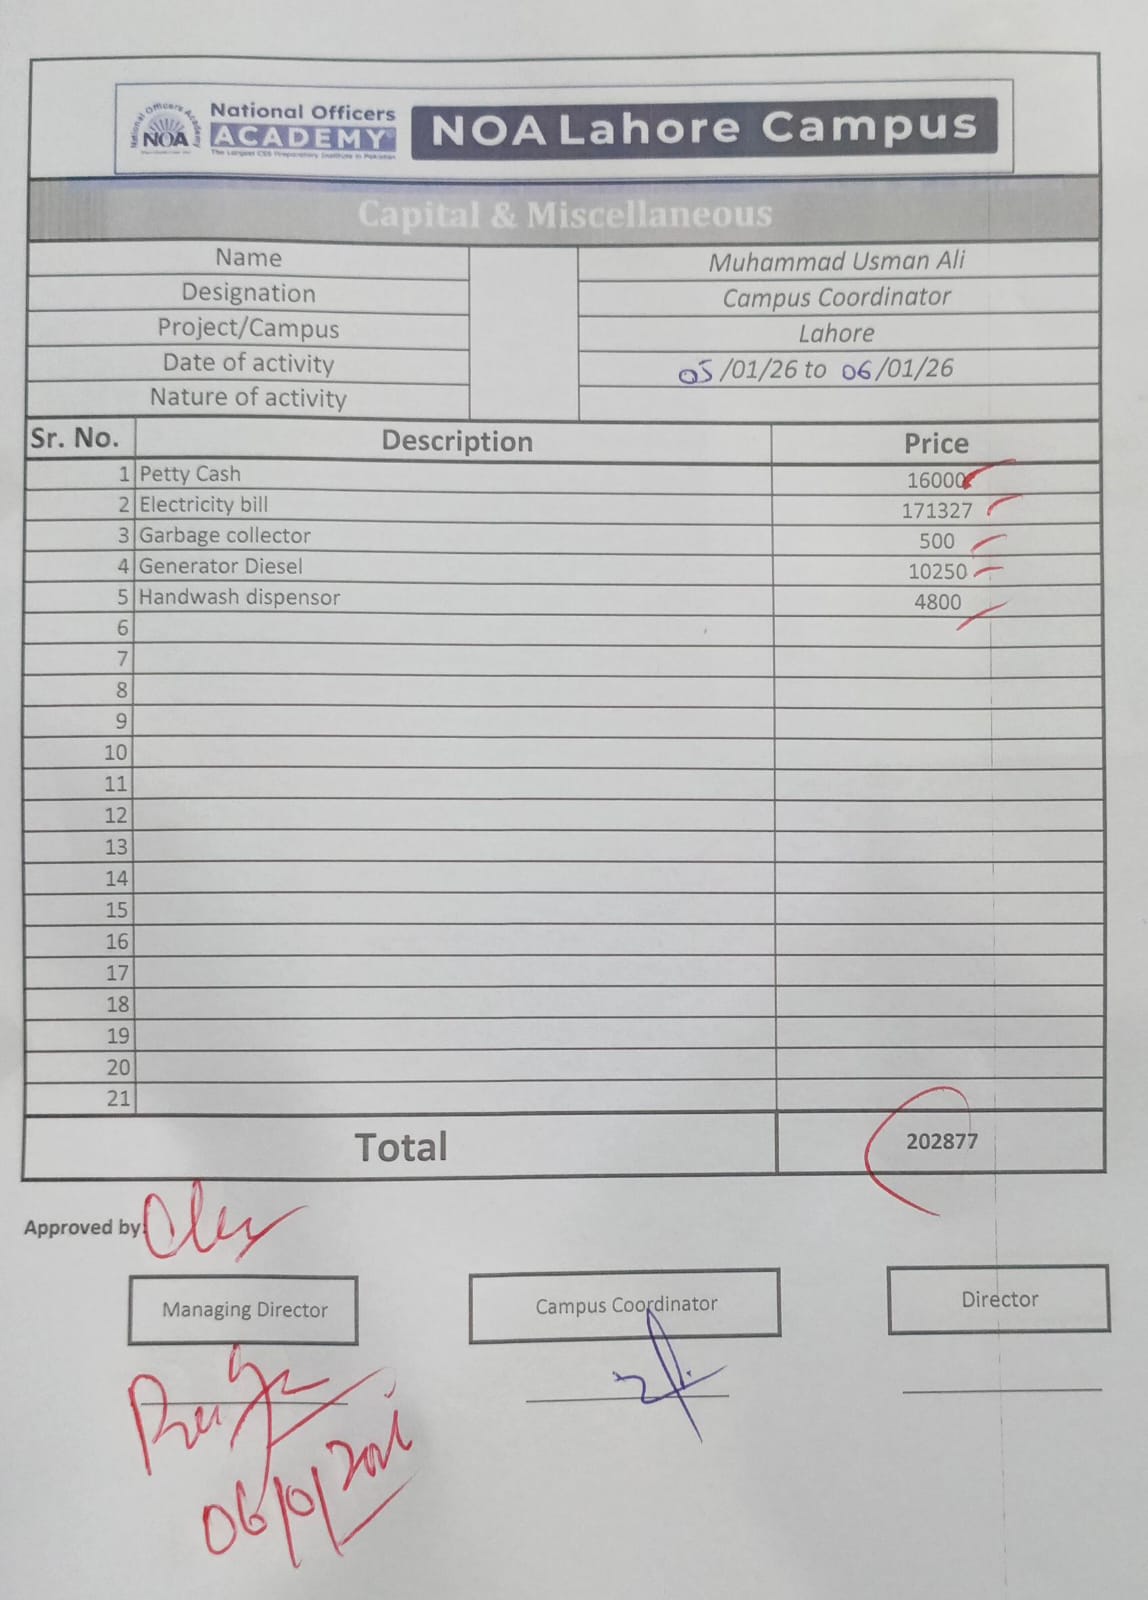 National Officers Academy
NOA
National Officers
ACADEMY
The Largest CSS Preparatory Institute in Pakistan
NOA Lahore Campus
Capital & Miscellaneous
Name Muhammad Usman Ali
Designation Campus Coordinator
Project/Campus Lahore
Date of activity 05/01/26 to 06/01/26
Nature of activity
Sr. No. Description Price
1 Petty Cash 16000
2 Electricity bill 171327
3 Garbage collector 500
4 Generator Diesel 10250
5 Handwash dispensor 4800
6
7
8
9
10
11
12
13
14
15
16
17
18
19
20
21
Total 202877
Approved by:
Managing Director Campus Coordinator Director